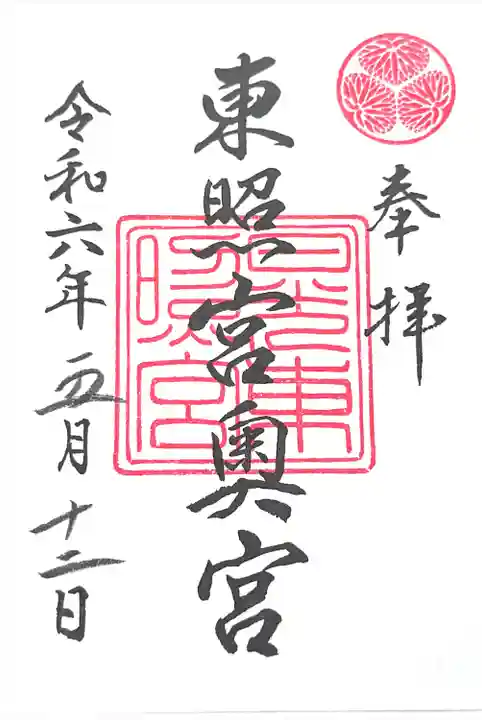 奉拝
東照宮奥宮
令和六年五月十二日
日光東
照宮